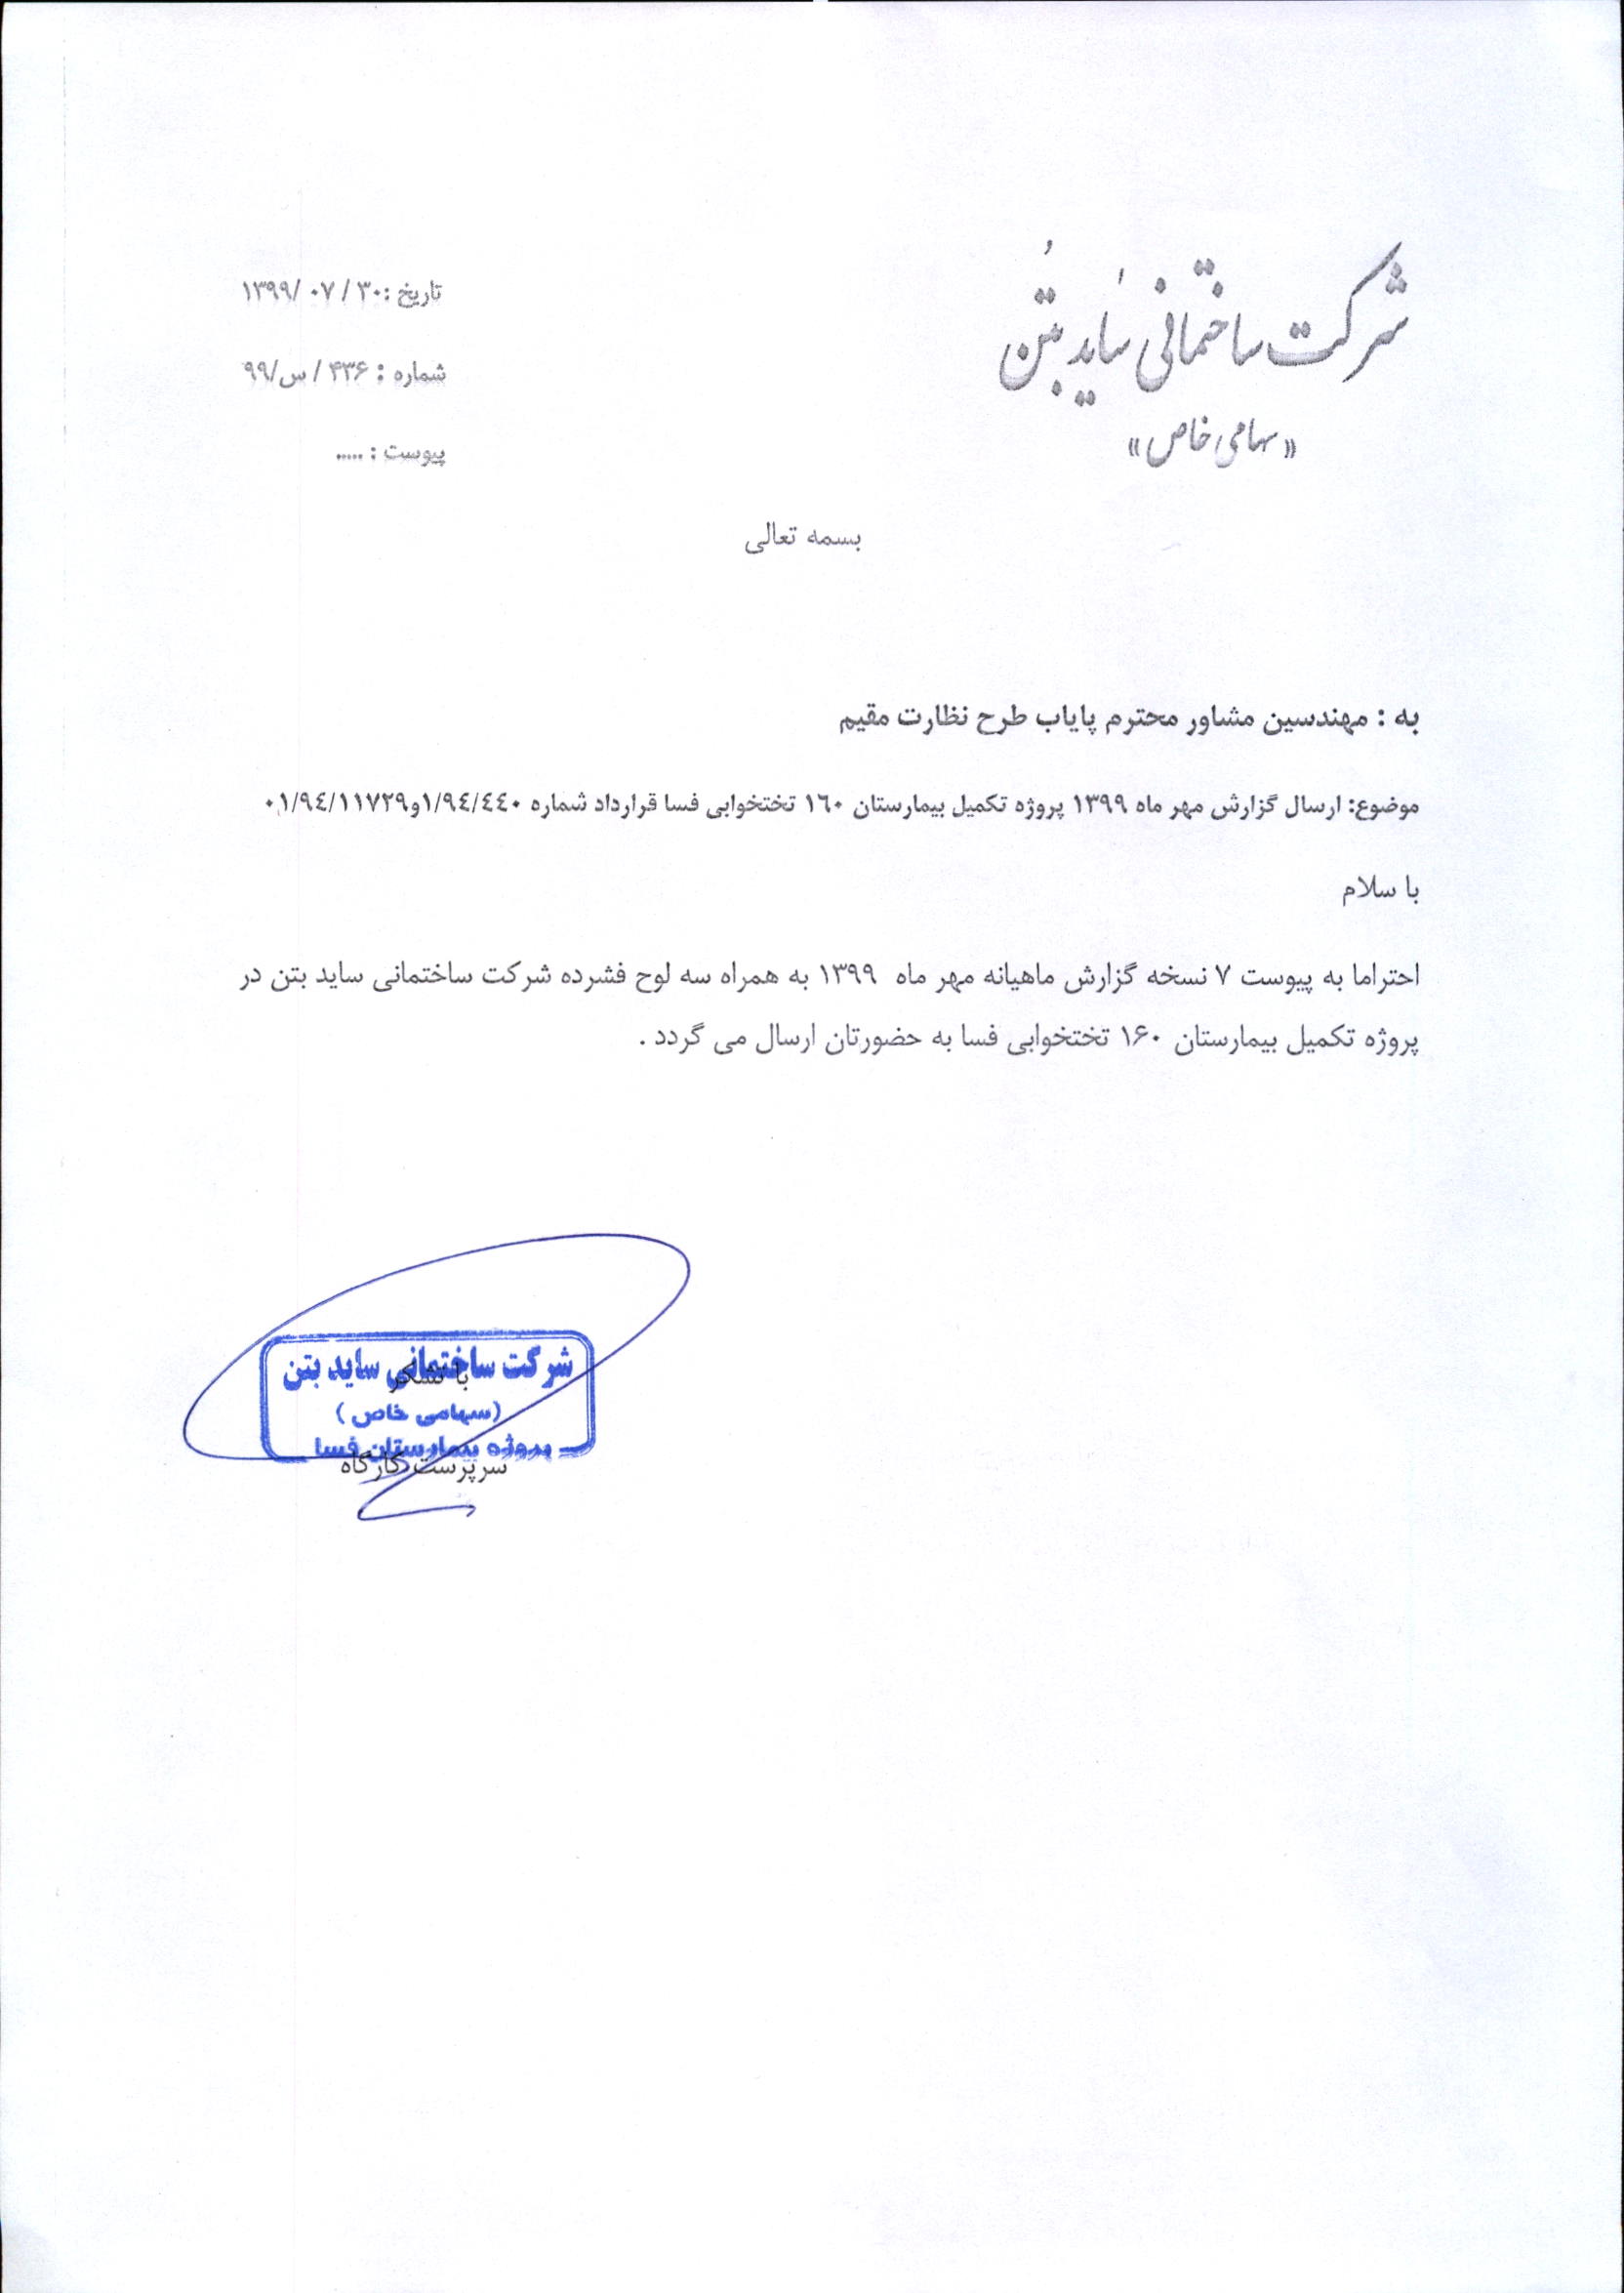 شرکت ساختمانی ساید بتن
«سهامی خاص»
تاریخ :۳۰ / ۰۷ /۱۳۹۹
شماره : ۴۳۶ / س/۹۹
پیوست : .....
بسمه تعالی
به : مهندسین مشاور محترم پایاب طرح نظارت مقیم
موضوع: ارسال گزارش مهر ماه ۱۳۹۹ پروژه تکمیل بیمارستان ١٦٠ تختخوابی فسا قرارداد شماره ١/٩٤/٤٤٠و١/٩٤/١١٧٢٩.
با سلام
احتراما به پیوست ۷ نسخه گزارش ماهیانه مهر ماه ۱۳۹۹ به همراه سه لوح فشرده شرکت ساختمانی ساید بتن در
پروژه تکمیل بیمارستان ۱۶۰ تختخوابی فسا به حضورتان ارسال می گردد .
شرکت ساختمانی ساید بتن
با تشکر
(سهامی خاص )
پروژه بیمارستان فسا
سرپرست کارگاه